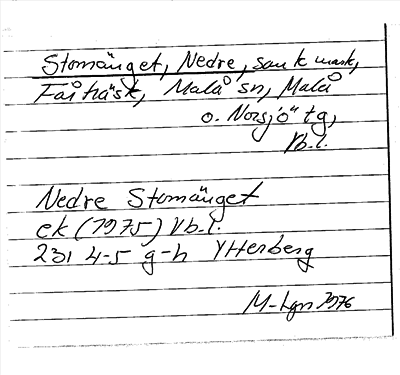 Stomänget, Nedre, sank mark,
Fårträsk, Malå sn, Malå
o. Norsjö tg,
Vb.l.
Nedre Stomänget
ek (1975) Vb.l.
231 4-5 g-h Ytterberg
M-Lgn 1976